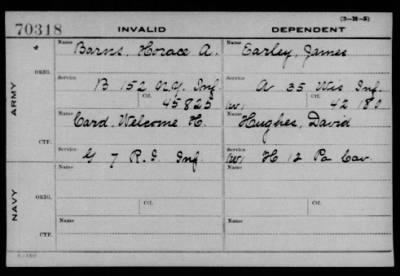 (3-M-5)
70318 INVALID DEPENDENT
Name Barns, Horace A. Name Earley, James
ORIG. Service B 152 N.Y. Inf. Service A 35 Wis Inf.
Ctf. 45825 (W) Ctf. 42180
ARMY
Name Card, Welcome H. Name Hughes, David
CTF. Service G 7 R.I. Inf. Service (W) H 12 Pa Cav
Name Name
ORIG. Service Service
Ctf. Ctf.
NAVY
Name Name
CTF. Service Service